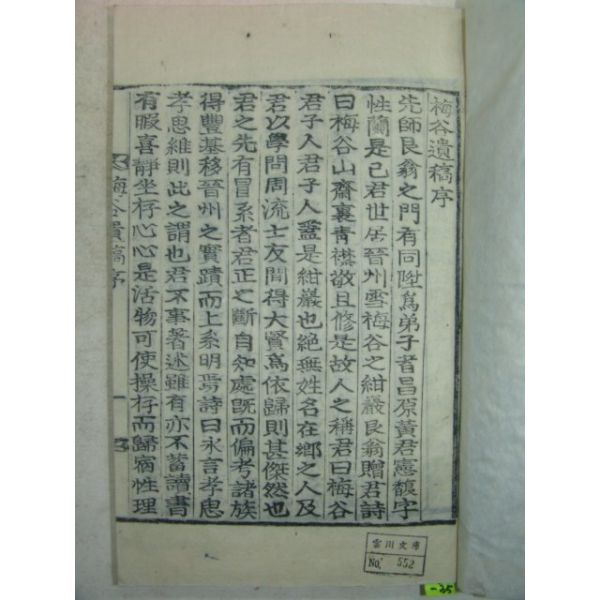 梅谷遺稿序
先師艮翁之門有同陞為弟子者昌原黃君憲馥字
性蘭是已君世居晉州雪梅谷之紺巖艮翁贈君詩
曰梅谷山齋裏靑襟敬且修是故人之稱君曰梅谷
君子人君子人盖是紺巖也絶無姓名在鄉之人及
君以學問周流士友間得大賢為依歸則甚傑然也
君之先有冒系者君正之斷自知處旣而偏考諸族
得豐基移晉州之實蹟而上系明焉詩曰永言孝思
孝思維則此之謂也君不事著述雖有亦不蓄讀書
有暇喜靜坐存心心是活物可使操存而歸宿性理
梅谷遺稿序
一
雲川文庫
No. 552
-25